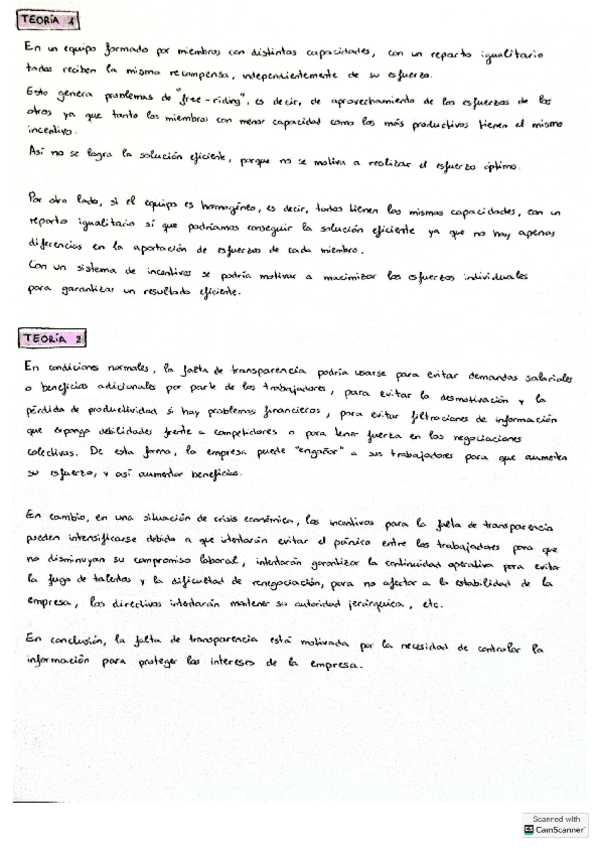 TEORÍA 1
En un equipo formado por miembros con distintas capacidades, con un reparto igualitario
todos reciben la misma recompensa, independientemente de su esfuerzo.
Esto genera problemas de "free-riding", es decir, de aprovechamiento de los esfuerzos de los
otros ya que tanto los miembros con menor capacidad como los más productivos tienen el mismo
incentivo.
Así no se logra la solución eficiente, porque no se motiva a realizar el esfuerzo óptimo.
Por otro lado, si el equipo es homogéneo, es decir, todos tienen las mismas capacidades, con un
reparto igualitario sí que podríamos conseguir la solución eficiente ya que no hay apenas
diferencias en la aportación de esfuerzos de cada miembro.
Con un sistema de incentivos se podría motivar a maximizar los esfuerzos individuales
para garantizar un resultado eficiente.
TEORÍA 2
En condiciones normales, la falta de transparencia podría usarse para evitar demandas salariales
o beneficios adicionales por parte de los trabajadores, para evitar la desmotivación y la
pérdida de productividad si hay problemas financieros, para evitar filtraciones de información
que exponga debilidades frente a competidores o para tener fuerza en las negociaciones
colectivas. De esta forma, la empresa puede "engañar" a sus trabajadores para que aumenten
su esfuerzo, y así aumentar beneficios.
En cambio, en una situación de crisis económica, los incentivos para la falta de transparencia
pueden intensificarse debido a que intentarán evitar el pánico entre los trabajadores para que
no disminuyan su compromiso laboral, intentarán garantizar la continuidad operativa para evitar
la fuga de talentos y la dificultad de renegociación, para no afectar a la estabilidad de la
empresa, los directivos intentarán mantener su autoridad jerárquica, etc.
En conclusión, la falta de transparencia está motivada por la necesidad de controlar la
información para proteger los intereses de la empresa.
Scanned with
CamScanner